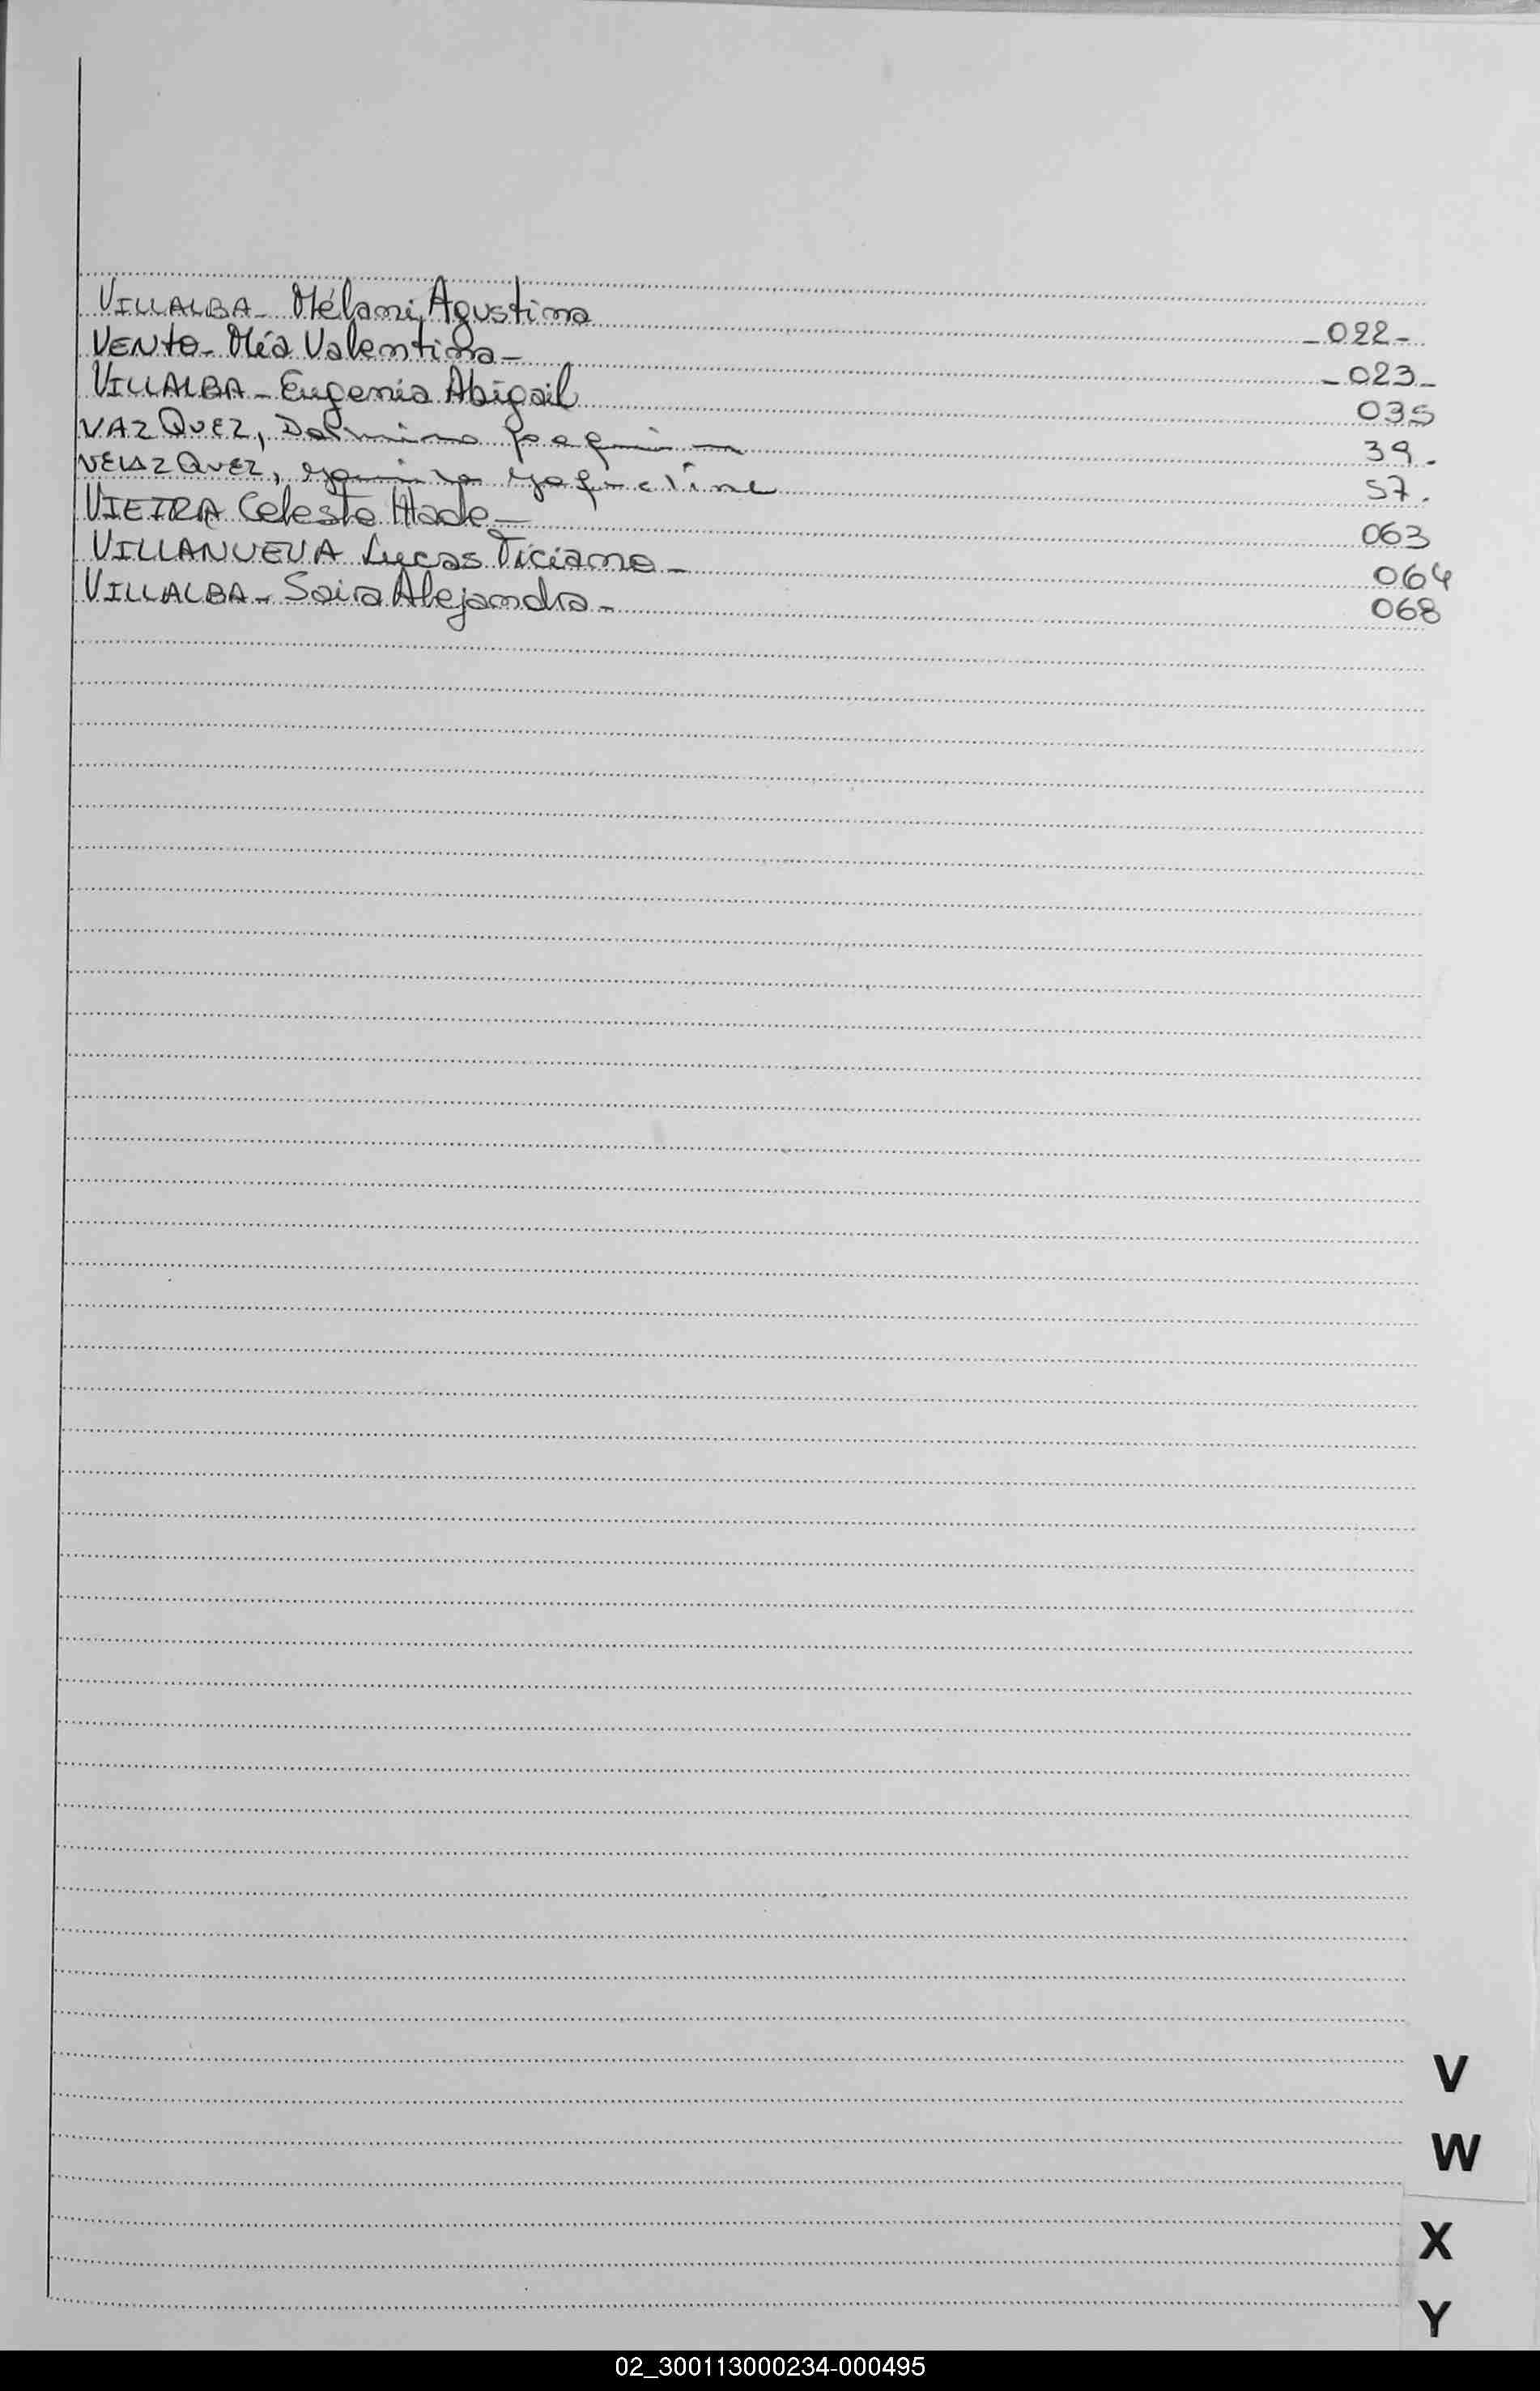 VILLALBA- Mélani Agustina -022-
VENTO- Mía Valentina- -023-
VILLALBA- Eugenia Abigail 035
VAZQUEZ, Joaquin 39.
VELAZQUEZ, 57.
VIEIRA Celeste Jade- 063
VILLANUEVA Lucas Ticiano- 064
VILLALBA- Saira Alejandra- 068
V
W
X
Y
02_300113000234-000495